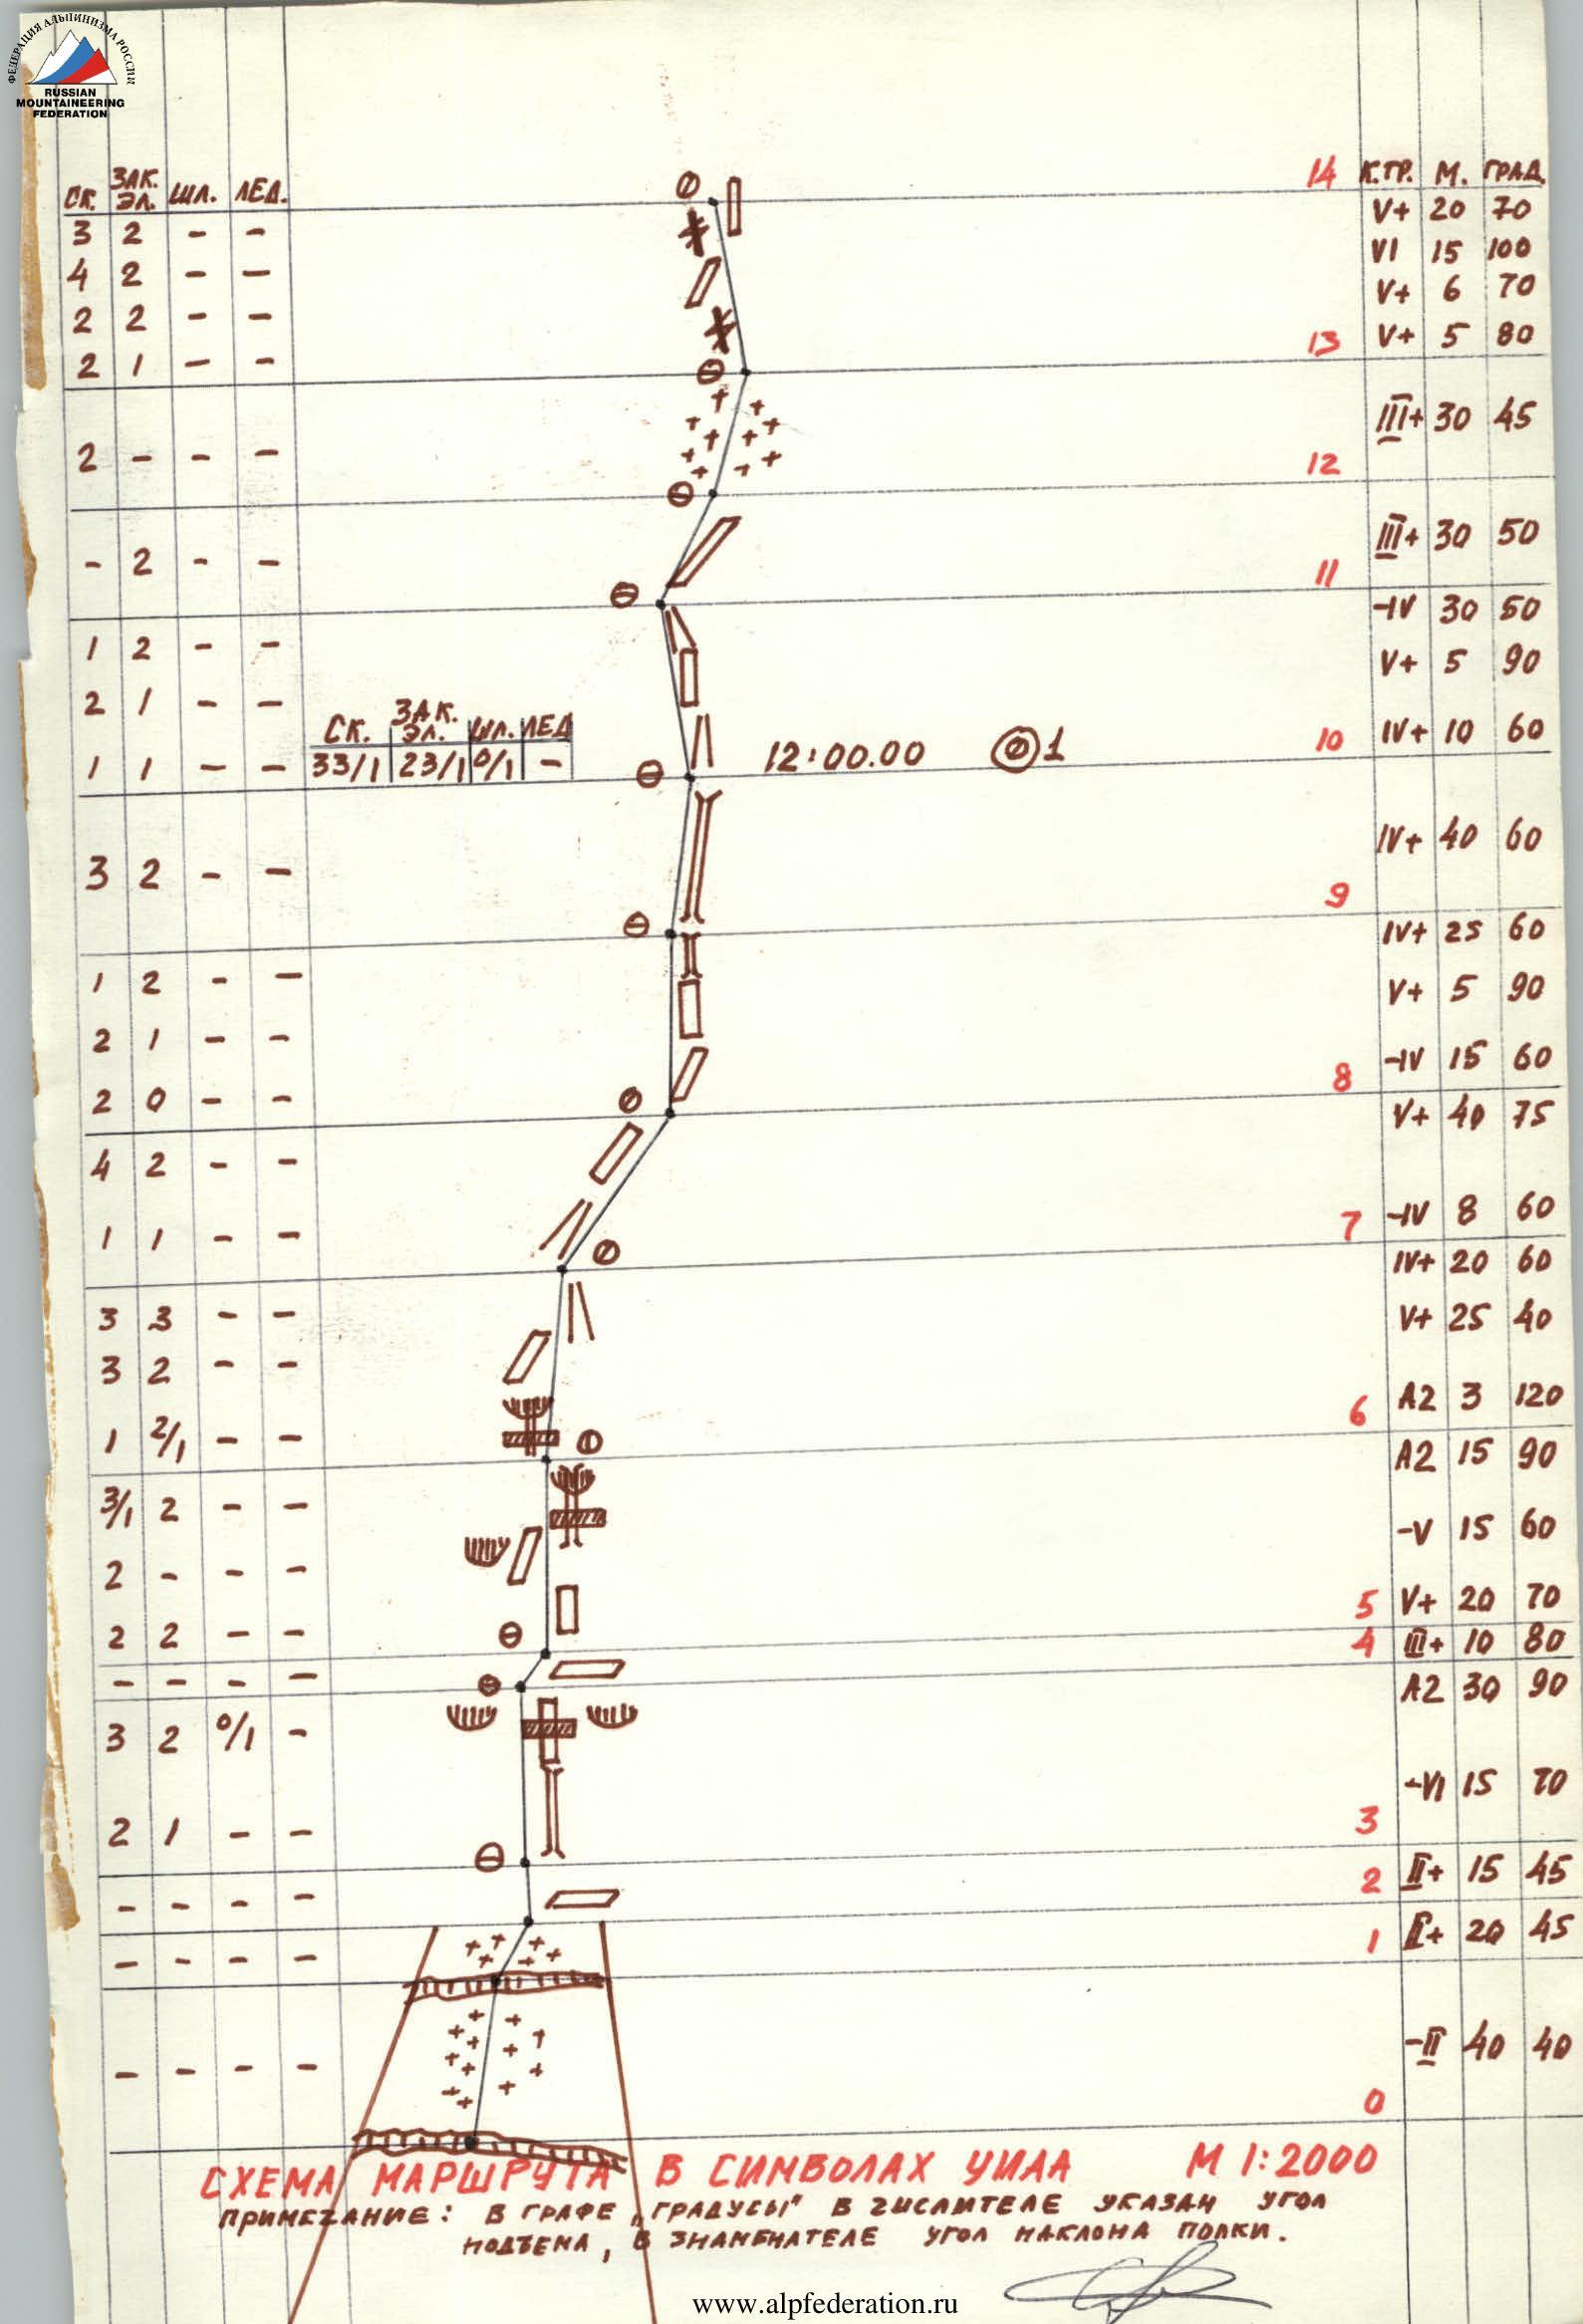 ФЕДЕРАЦИЯ АЛЬПИНИЗМА РОССИИ
RUSSIAN
MOUNTAINEERING
FEDERATION
СК. ЗАК. ЭЛ. ШЛ. ЛЕД. 14 К.ТР. М. ГРАД.
3 2 - - V+ 20 70
4 2 - - VI 15 100
2 2 - - V+ 6 70
2 1 - - 13 V+ 5 80
2 - - - 12 III+ 30 45
- 2 - - 11 III+ 30 50
1 2 - - -IV 30 50
2 1 - - V+ 5 90
СК. ЗАК. ЭЛ. ШЛ. ЛЕД
1 1 - - 33/1 23/1 0/1 - 12:00.00 1 10 IV+ 10 60
3 2 - - 9 IV+ 40 60
1 2 - - IV+ 25 60
2 1 - - V+ 5 90
2 0 - - 8 -IV 15 60
4 2 - - V+ 40 75
1 1 - - 7 -IV 8 60
3 3 - - IV+ 20 60
3 2 - - V+ 25 40
1 2/1 - - 6 А2 3 120
3/1 2 - - А2 15 90
2 - - - -V 15 60
2 2 - - 5 V+ 20 70
- - - - 4 III+ 10 80
3 2 0/1 - А2 30 90
2 1 - - 3 -VI 15 70
- - - - 2 II+ 15 45
- - - - 1 II+ 20 45
- - - - 0 -II 40 40
СХЕМА МАРШРУТА В СИМВОЛАХ УИАА М 1:2000
ПРИМЕЧАНИЕ: В ГРАФЕ „ГРАДУСЫ" В ЧИСЛИТЕЛЕ УКАЗАН УГОЛ
ПОДЪЕМА, В ЗНАМЕНАТЕЛЕ УГОЛ НАКЛОНА ПОЛКИ.
www.alpfederation.ru